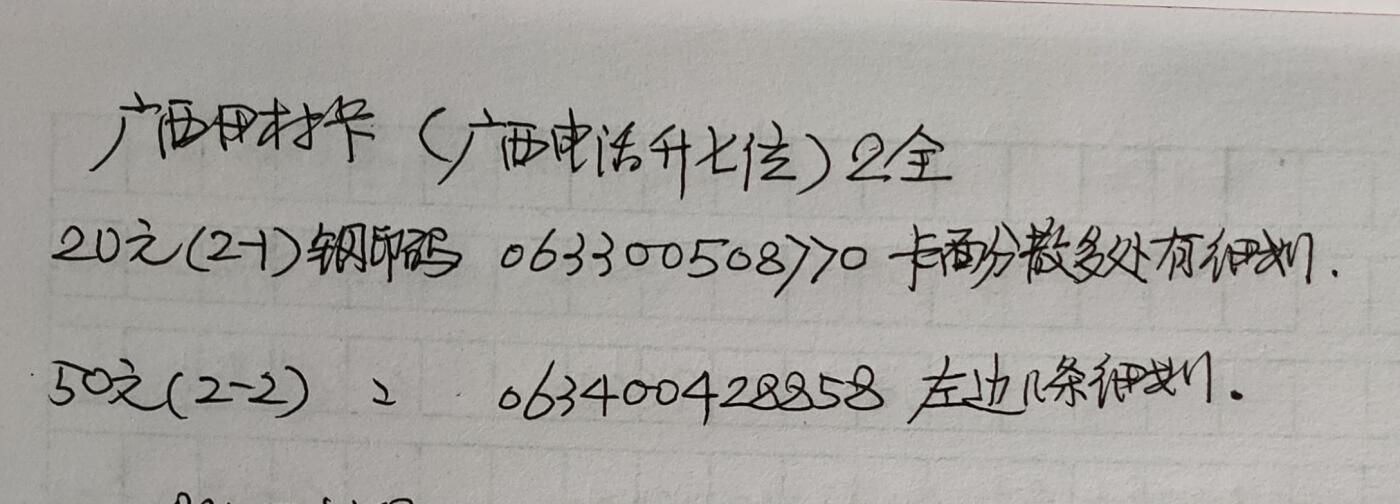 广西田村卡（广西电话升七位）2全
20元(2-1)钢印码 063300508770 卡面分散多处有细划.
50元(2-2) 2 063400428858 左边1条细划.